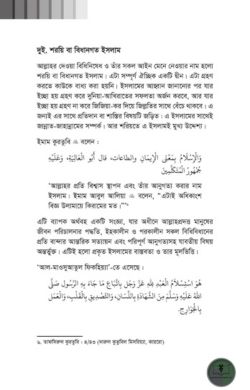 দুই. শরয়ি বা বিধানগত ইসলাম
আল্লাহর দেওয়া বিধিনিষেধ ও তাঁর সকল আইন মেনে নেওয়ার নাম হলো
শরয়ি বা বিধানগত ইসলাম। এটা সম্পূর্ণ ঐচ্ছিক একটি দ্বীন। এটা গ্রহণ
করতে কাউকে বাধ্য করা হয়নি। ইসলামের আহ্বান জানানোর পর যার
ইচ্ছা হয় গ্রহণ করে দুনিয়া-আখিরাতের সফলতা অর্জন করবে, আর যার
ইচ্ছা হয় গ্রহণ না করে জিজিয়া-কর দিয়ে জিল্লতির সাথে বেঁচে থাকবে। এ
জন্যই এর সাথে প্রতিদান বা শাস্তির বিষয়টি জড়িত। এ ইসলামের সাথেই
জান্নাত-জাহান্নামের সম্পর্ক। আর শরিয়তে এ ইসলামই মূখ্য উদ্দেশ্য।
ইমাম কুরতুবি বলেন :
وَالْإِسْلَامُ بِمَعْنَى الْإِيمَانِ وَالطَّاعَاتِ، قَالَ أَبُو الْعَالِيَةِ، وَعَلَيْهِ
جُمْهُورُ الْمُتَكَلِّمِينَ
‘আল্লাহর প্রতি বিশ্বাস স্থাপন এবং তাঁর আনুগত্য করার নাম
ইসলাম। ইমাম আবুল আলিয়া বলেন, “এটাই অধিকাংশ
বিজ্ঞ উলামায়ে কিরামের মত।”’৬
এটি ব্যাপক অর্থবহ একটি সংজ্ঞা, যার অধীনে আল্লাহপ্রদত্ত মানুষের
জীবন পরিচালনার পদ্ধতি, ইহকালীন ও পরকালীন সকল বিধিবিধানের
প্রতি বান্দার আন্তরিক সত্যায়ন এবং পরিপূর্ণ আনুগত্যসহ যাবতীয় বিষয়
অন্তর্ভুক্ত। এটিই হলো প্রকৃত ইসলামের বাস্তবতা ও তার মূলভিত্তি।
‘আল-মাওসুআতুল ফিকহিয়্যা’-তে এসেছে :
هُوَ اسْتِسْلَامُ الْعَبْدِ لِلَّهِ عَزَّ وَجَل بِاتِّبَاعِ مَا جَاءَ بِهِ الرَّسُول صَلَّى
اللَّهُ عَلَيْهِ وَسَلَّمَ مِنَ الشَّهَادَةِ بِاللِّسَانِ، وَالتَّصْدِيقِ بِالْقَلْبِ، وَالْعَمَل
بِالْجَوَارِحِ.
৬. তাফসিরুল কুরতুবি : ৪/৪৩ (দারুল কুতুবিল মিসরিয়্যা, কায়রো)